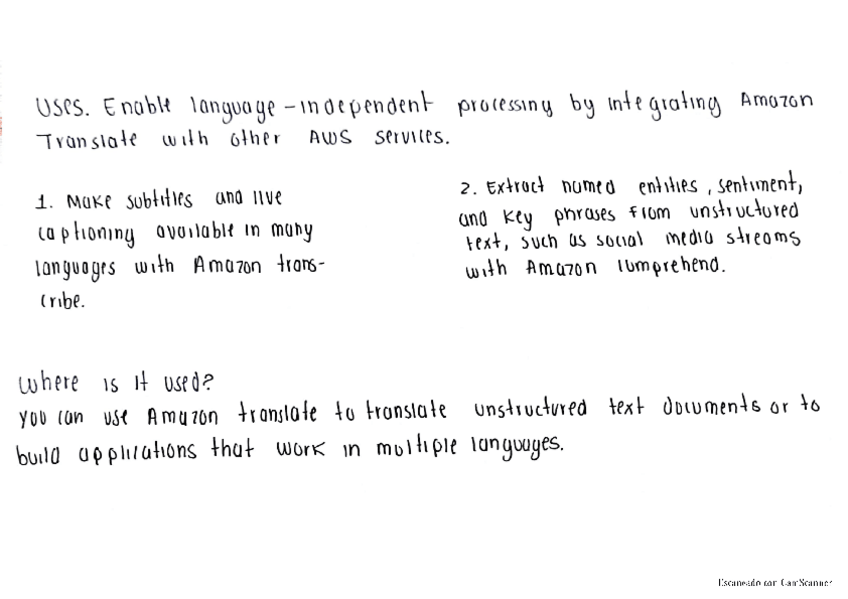 Uses. Enable language-independent processing by integrating Amazon
Translate with other AWS services.
1. Make subtitles and live
captioning available in many
languages with Amazon trans-
cribe.
2. Extract named entities, sentiment,
and key phrases from unstructured
text, such as social media streams
with Amazon comprehend.
Where is it used?
you can use Amazon translate to translate unstructured text documents or to
build applications that work in multiple languages.
Escaneado con CamScanner